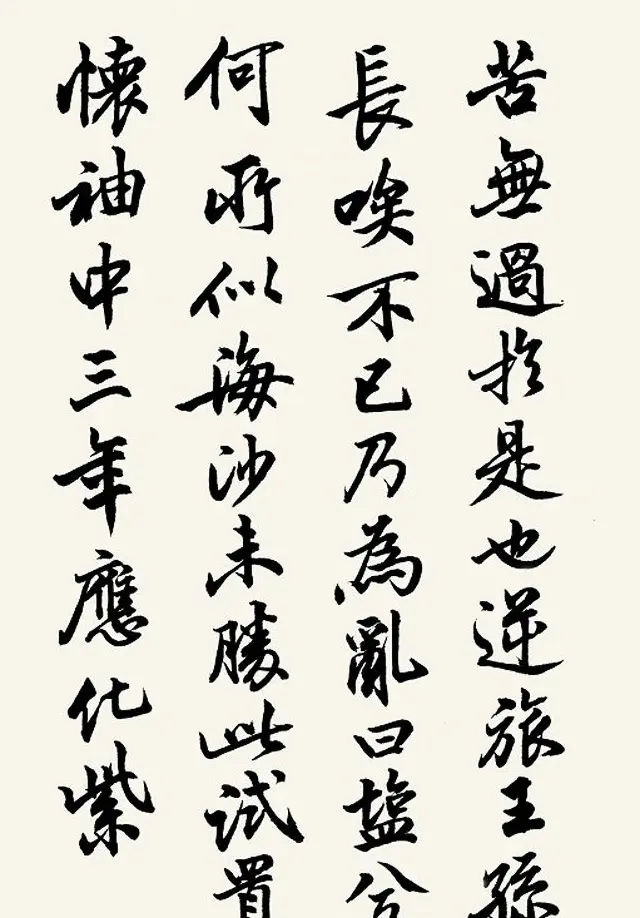 苦無過於是也逆旅王孫
長唉不已乃為亂曰塩兮
何所似海沙未勝此試置
懷袖中三年應化紫